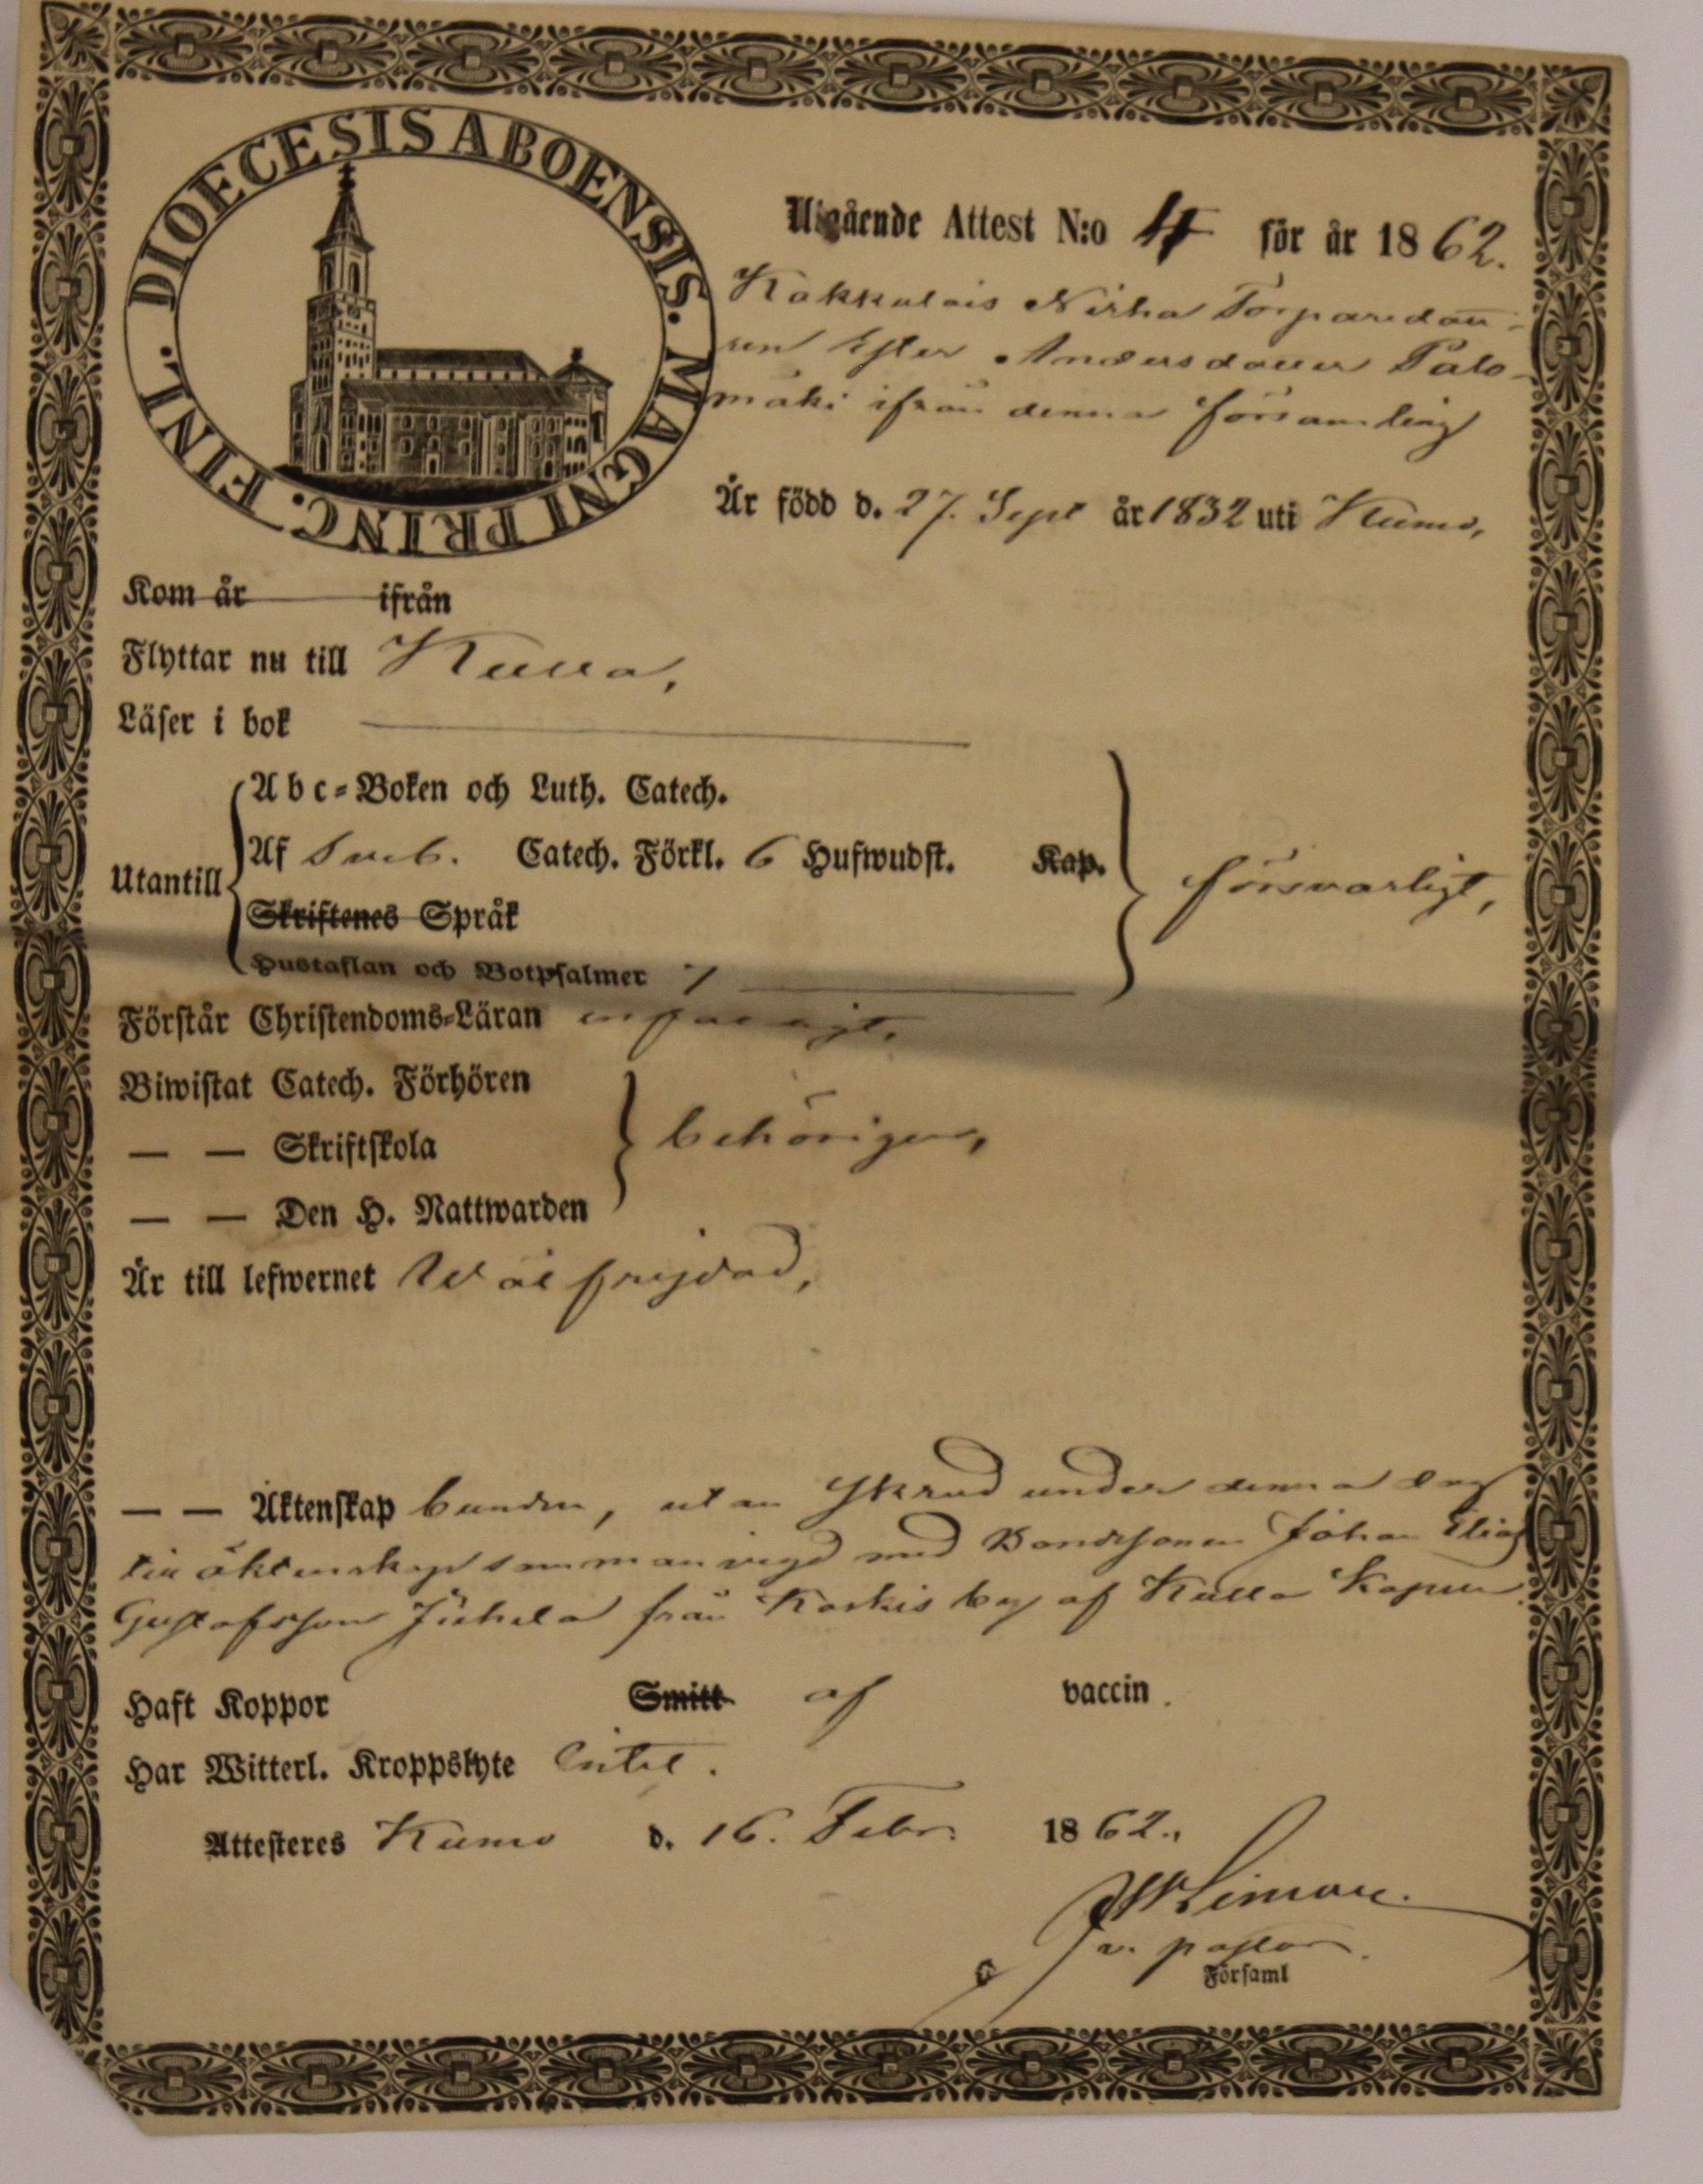 DIOECESIS ABOENSIS. MAGNI PRINC. FINL.
Utgående Attest N:o 4 för år 1862.
Kakkulais Nisha Torparedott-
ren Ester Andersdotter Palo-
mäki ifrån denna församling
Är född d. 27. Sept år 1832 uti Kumo,
Kom år ifrån
Flyttar nu till Kulla,
Läser i bok
Utantill
Abc-Boken och Luth. Catech.
Af Sveb. Catech. Förkl. 6 Hufwudst. Kap.
försvarligt,
Skriftenes Språk
Hustaflan och Botpsalmer 7
Förstår Christendoms-Läran
Biwistat Catech. Förhören
— — Skriftskola
behörigen,
— — Den H. Nattwarden
Är till lefwernet Wälfrejdad,
— — Äktenskap bunden, utan under denna dag
till äktenskap sammanvigd med Bondesonen Johan Elias
Gustafsson Juhela från Koskis by af Kulla Kapell.
Haft Koppor Smitt af vaccin.
Har Witterl. Kroppslyte intet.
Attesteres Kumo d. 16. Febr. 1862.
v. pastor.
Församl